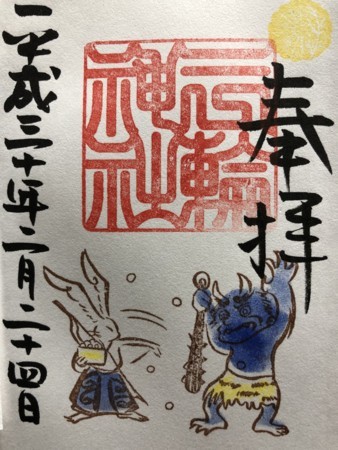 奉拝
三輪
神社
平成三十年二月二十四日